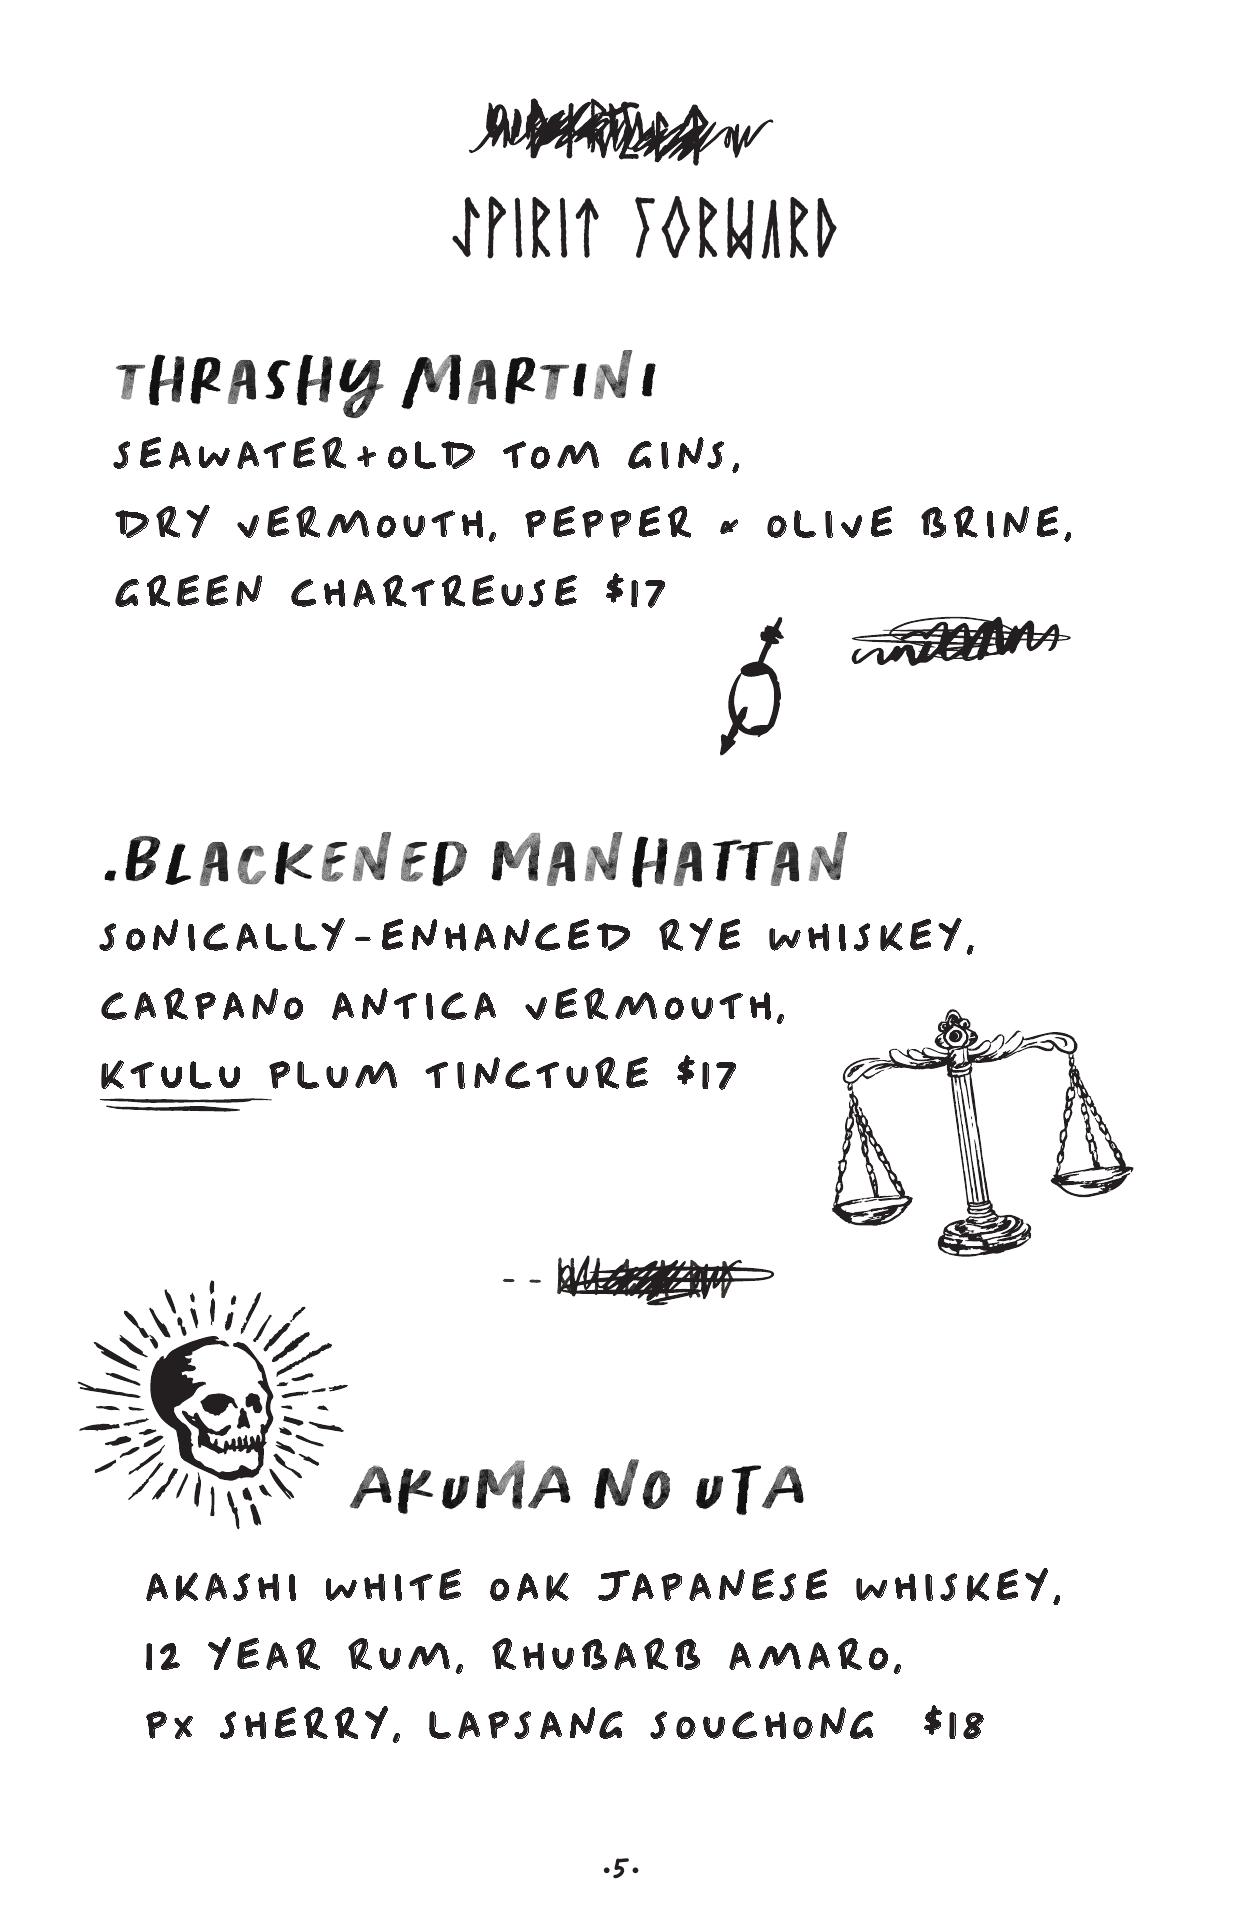 SPIRIT FORWARD
THRASHY MARTINI
SEAWATER+OLD TOM GINS,
DRY VERMOUTH, PEPPER & OLIVE BRINE,
GREEN CHARTREUSE $17
.BLACKENED MANHATTAN
SONICALLY-ENHANCED RYE WHISKEY,
CARPANO ANTICA VERMOUTH,
KTULU PLUM TINCTURE $17
AKUMA NO UTA
AKASHI WHITE OAK JAPANESE WHISKEY,
12 YEAR RUM, RHUBARB AMARO,
PX SHERRY, LAPSANG SOUCHONG $18
·5·